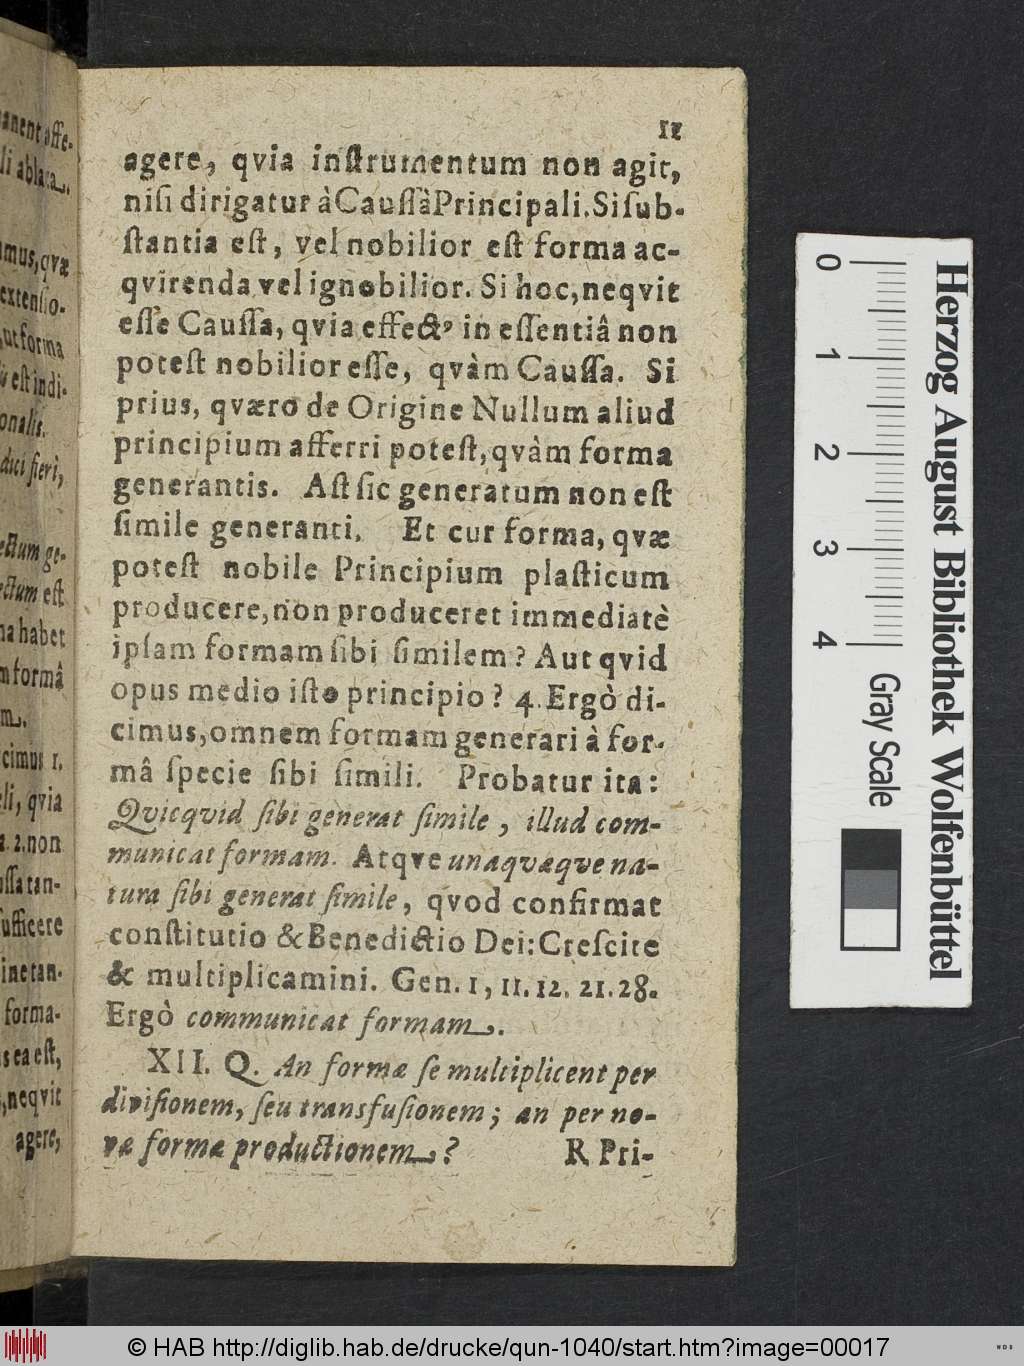 11
agere, qvia inſtrumentum non agit,
niſi dirigatur à Cauſſâ Principali. Si ſub-
ſtantia eſt, vel nobilior eſt forma ac-
qvirenda vel ignobilior. Si hoc, neqvit
eſſe Cauſſa, qvia effectꝰ in eſſentiâ non
poteſt nobilior eſſe, qvàm Cauſſa. Si
prius, qværo de Origine Nullum aliud
principium afferri poteſt, qvàm forma
generantis. Aſt ſic generatum non eſt
ſimile generanti. Et cur forma, qvæ
poteſt nobile Principium plaſticum
producere, non produceret immediatè
ipſam formam ſibi ſimilem? Aut qvid
opus medio iſto principio? 4. Ergò di-
cimus, omnem formam generari à for-
mâ ſpecie ſibi ſimili. Probatur ita:
Qvicqvid ſibi generat ſimile, illud com-
municat formam. Atqve unaqvæqve na-
tura ſibi generat ſimile, qvod confirmat
conſtitutio & Benedictio Dei: Creſcite
& multiplicamini. Gen. 1, 11. 12. 21. 28.
Ergò communicat formam.
XII. Q. An formæ ſe multiplicent per
diviſionem, ſeu transfuſionem; an per no-
væ formæ productionem?
R. Pri-
anent affe-
li ablata.
imus, qvæ
extenſio-
ut forma
eſt indi-
onalis.
dici fieri,
ectum ge-
ectum eſt
na habet
m formâ
m.
cimus 1.
eli, qvia
a. 2. non
uſſa tan-
ufficere
ine tan-
forma-
s ea eſt,
, neqvit
agere,
0
1
2
3
4
Herzog August Bibliothek Wolfenbüttel
Gray Scale
© HAB http://diglib.hab.de/drucke/qun-1040/start.htm?image=00017